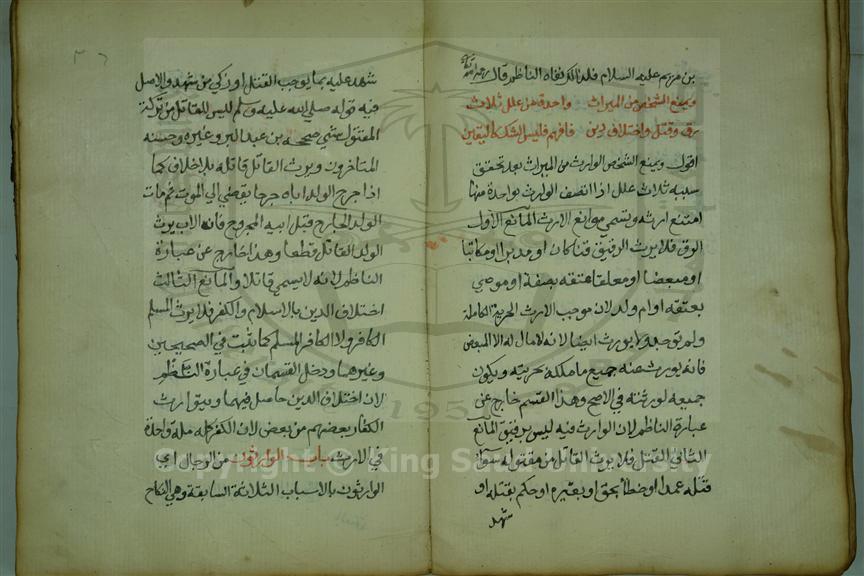 بن مريم عليه السلام فلذا لكرفقاه الناظم قال رحمه الله تعالى
ويمنع الشخص من الميراث واحدة من علل ثلاث
رق وقتل واختلاف دين فافهم فليس الشك كاليقين
اقول ويمنع الشخص الوارث من الميراث بعد تحقق
سببه ثلاث علل اذا اتصف الوارث بواحدة منها
امتنع ارثه وتسمى موانع الارث المانع الاول
الرق فلا يرث الرقيق قنا كان او مدبرا او مكاتبا
او مبعضا او معلقا عتقه بصفة او موصي
بعتقه او ام ولد لان موجب الارث الحرية الكاملة
ولم توجد ولا يورث ايضا لانه لا مال له الا المبعض
فانه يورث عنه جميع ما ملكه بحريته ويكون
جميعه لورثته في الاصح وهذا القسم خارج عن
عبارة الناظم لان الوارث فيه ليس برقيق المانع
الثاني القتل فلا يرث القاتل من مقتوله سوآ
قتله عمدا او خطأ بحق او بغيره او حكم بقتله او
شهد
٣٦
شهد عليه بما يوجب القتل او زكي من شهد والاصل
فيه قوله صلي الله عليه وسلم ليس للقاتل من تركة
المقتول شئ صححه بن عبد البر وغيره وحسنه
المتاخرون ويرث القاتل قاتله بلا خلاف كما
اذا جرح الولد اباه جرحا يفضي الي الموت ثم مات
الولد الجارح قبل ابيه المجروح فانه الاب يرث
الولد القاتل قطعا وهذا خارج عن عبارة
الناظم لانه لا يسمي قاتلا والمانع الثالث
اختلاف الدين بالاسلام والكفر فلا يرث المسلم
الكافر ولا الكافر المسلم كما ثبت في الصحيحين
وغيرهما ودخل القسمان في عبارة الناظم
لان اختلاف الدين حاصل فيهما ويتوارث
الكفار بعضهم من بعض لان الكفر كله ملة واحدة
في الارث باب الوارثون من الرجال اي
الوارثون بالاسباب الثلاثة السابقة وهي النكاح
Copyright © King Saud University
1957